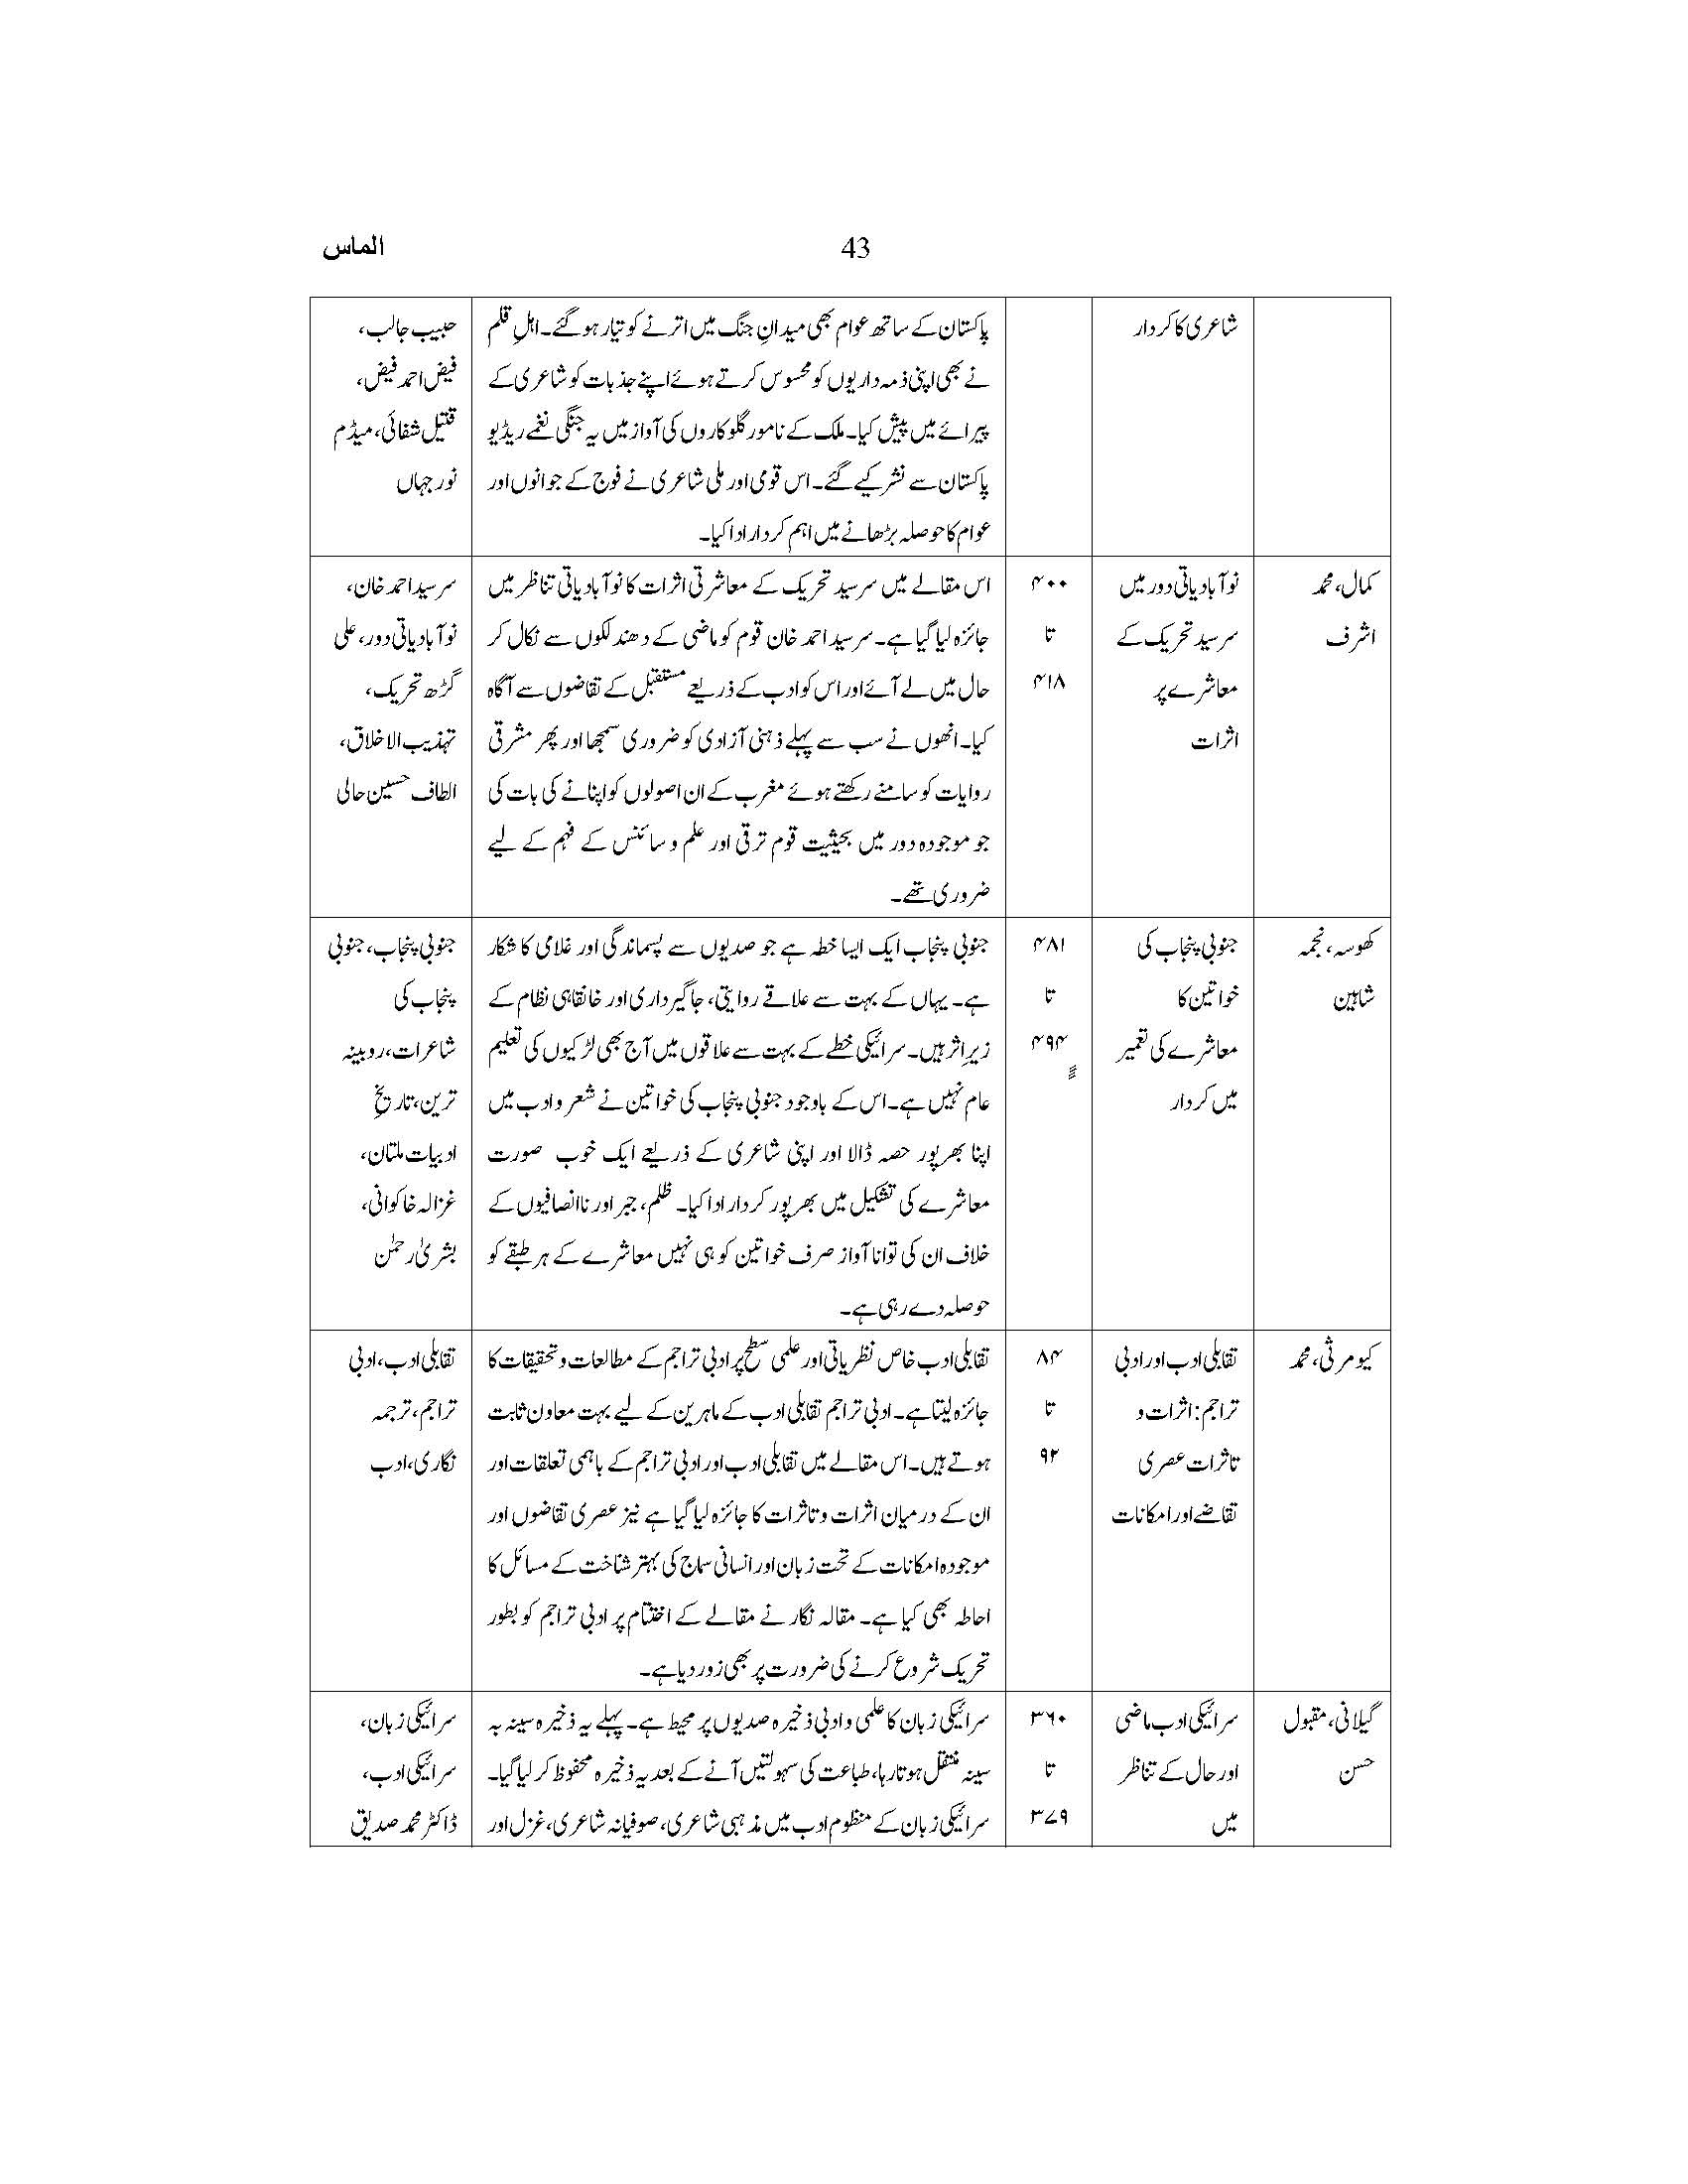 الماس
43
شاعری کا کردار
پاکستان کے ساتھ عوام بھی میدانِ جنگ میں اترنے کو تیار ہو گئے۔ اہلِ قلم
نے بھی اپنی ذمہ داریوں کو محسوس کرتے ہوئے اپنے جذبات کو شاعری کے
پیرائے میں پیش کیا۔ ملک کے نامور گلوکاروں کی آواز میں یہ جنگی نغمے ریڈیو
پاکستان سے نشر کیے گئے۔ اس قومی اور ملی شاعری نے فوج کے جوانوں اور
عوام کا حوصلہ بڑھانے میں اہم کردار ادا کیا۔
حبیب جالب،
فیض احمد فیض،
قتیل شفائی، میڈم
نور جہاں
کمال، محمد
اشرف
نوآبادیاتی دور میں
سرسید تحریک کے
معاشرے پر
اثرات
۴۰۰
تا
۴۱۸
اس مقالے میں سرسید تحریک کے معاشرتی اثرات کا نوآبادیاتی تناظر میں
جائزہ لیا گیا ہے۔ سرسید احمد خان قوم کو ماضی کے دھندلکوں سے نکال کر
حال میں لے آئے اور اس کو ادب کے ذریعے مستقبل کے تقاضوں سے آگاہ
کیا۔ انھوں نے سب سے پہلے ذہنی آزادی کو ضروری سمجھا اور پھر مشرقی
روایات کو سامنے رکھتے ہوئے مغرب کے ان اصولوں کو اپنانے کی بات کی
جو موجودہ دور میں بحیثیت قوم ترقی اور علم و سائنس کے فہم کے لیے
ضروری تھے۔
سرسید احمد خان،
نوآبادیاتی دور، علی
گڑھ تحریک،
تہذیب الاخلاق،
الطاف حسین حالی
کھوسہ، نجمہ
شاہین
جنوبی پنجاب کی
خواتین کا
معاشرے کی تعمیر
میں کردار
۴۸۱
تا
۴۹۴
جنوبی پنجاب ایک ایسا خطہ ہے جو صدیوں سے پسماندگی اور غلامی کا شکار
ہے۔ یہاں کے بہت سے علاقے روایتی، جاگیرداری اور خانقاہی نظام کے
زیرِ اثر ہیں۔ سرائیکی خطے کے بہت سے علاقوں میں آج بھی لڑکیوں کی تعلیم
عام نہیں ہے۔ اس کے باوجود جنوبی پنجاب کی خواتین نے شعر و ادب میں
اپنا بھرپور حصہ ڈالا اور اپنی شاعری کے ذریعے ایک خوب صورت
معاشرے کی تشکیل میں بھرپور کردار ادا کیا۔ ظلم، جبر اور ناانصافیوں کے
خلاف ان کی توانا آواز صرف خواتین کو ہی نہیں معاشرے کے ہر طبقے کو
حوصلہ دے رہی ہے۔
جنوبی پنجاب، جنوبی
پنجاب کی
شاعرات، روبینہ
ترین، تاریخِ
ادبیات ملتان،
غزالہ خاکوانی،
بشریٰ رحمٰن
کیومرثی، محمد
تقابلی ادب اور ادبی
تراجم: اثرات و
تاثرات عصری
تقاضے اور امکانات
۸۴
تا
۹۲
تقابلی ادب خاص نظریاتی اور علمی سطح پر ادبی تراجم کے مطالعات و تحقیقات کا
جائزہ لیتا ہے۔ ادبی تراجم تقابلی ادب کے ماہرین کے لیے بہت معاون ثابت
ہوتے ہیں۔ اس مقالے میں تقابلی ادب اور ادبی تراجم کے باہمی تعلقات اور
ان کے درمیان اثرات و تاثرات کا جائزہ لیا گیا ہے نیز عصری تقاضوں اور
موجودہ امکانات کے تحت زبان اور انسانی سماج کی بہتر شناخت کے مسائل کا
احاطہ بھی کیا ہے۔ مقالہ نگار نے مقالے کے اختتام پر ادبی تراجم کو بطور
تحریک شروع کرنے کی ضرورت پر بھی زور دیا ہے۔
تقابلی ادب، ادبی
تراجم، ترجمہ
نگاری، ادب
گیلانی، مقبول
حسن
سرائیکی ادب ماضی
اور حال کے تناظر
میں
۳۶۰
تا
۳۷۹
سرائیکی زبان کا علمی و ادبی ذخیرہ صدیوں پر محیط ہے۔ پہلے یہ ذخیرہ سینہ بہ
سینہ منتقل ہوتا رہا، طباعت کی سہولتیں آنے کے بعد یہ ذخیرہ محفوظ کر لیا گیا۔
سرائیکی زبان کے منظوم ادب میں مذہبی شاعری، صوفیانہ شاعری، غزل اور
سرائیکی زبان،
سرائیکی ادب،
ڈاکٹر محمد صدیق